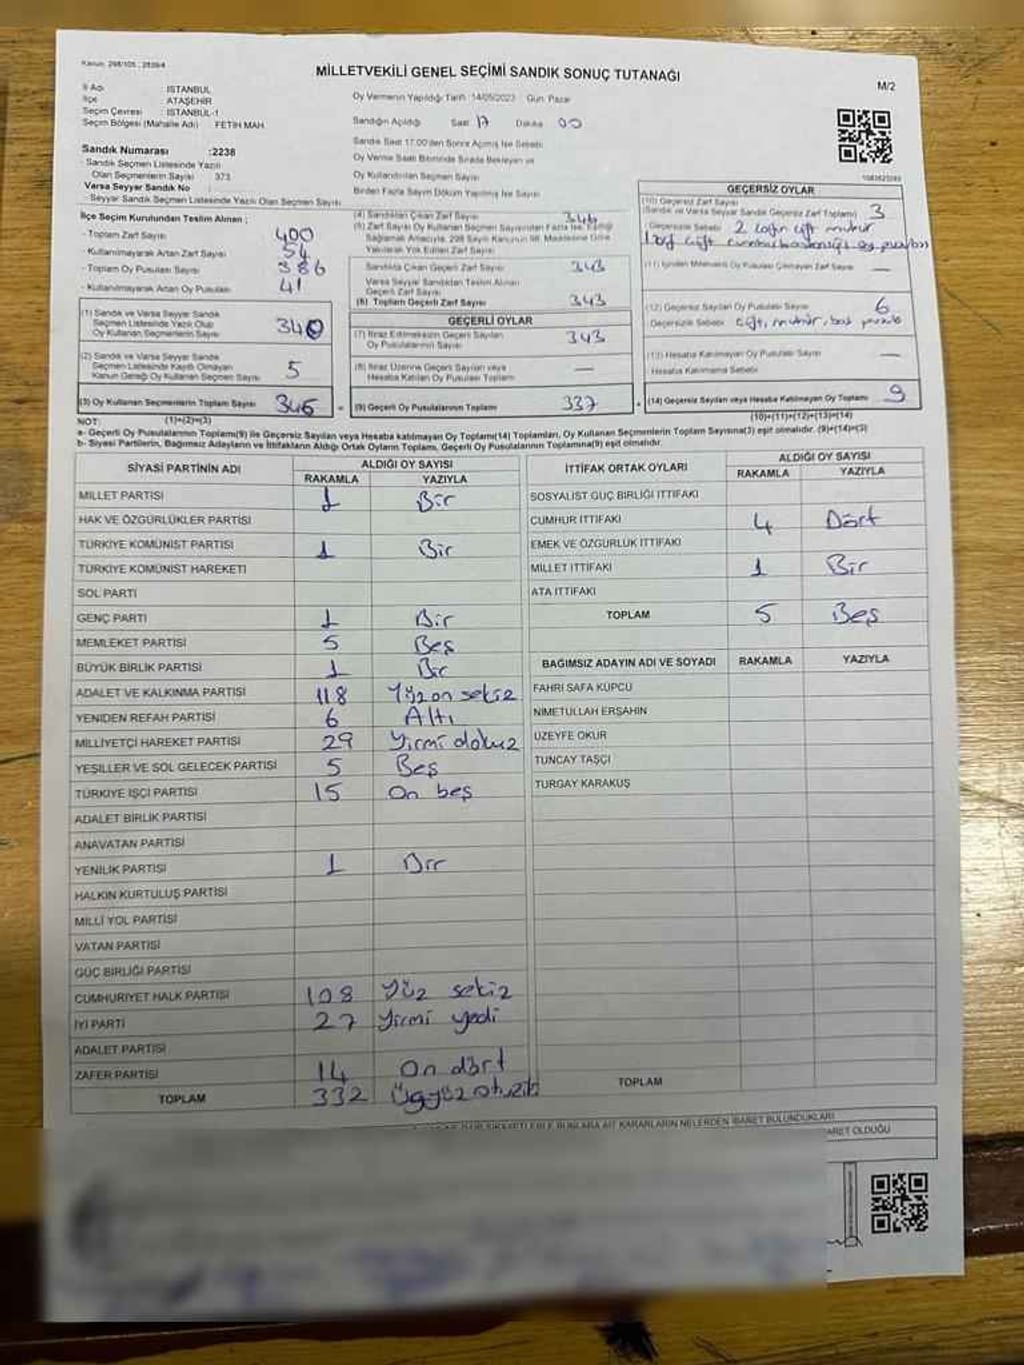 Kanun: 298/105 ; 2839/4
MİLLETVEKİLİ GENEL SEÇİMİ SANDIK SONUÇ TUTANAĞI
M/2
İl Adı : İSTANBUL
İlçe : ATAŞEHİR
Seçim Çevresi : İSTANBUL-1
Seçim Bölgesi (Mahalle Adı) FETİH MAH.
Oy Vermenin Yapıldığı Tarih: 14/05/2023 Gün: Pazar
Sandığın Açıldığı Saat 17 Dakika 00
Sandık Saat 17.00'den Sonra Açılmış İse Sebebi
Oy Verme Saati Bitiminde Sırada Bekleyen ve
Oy Kullandırılan Seçmen Sayısı
Birden Fazla Sayım Döküm Yapılmış İse Sayısı
Sandık Numarası :2238
- Sandık Seçmen Listesinde Yazılı
Olan Seçmenlerin Sayısı 373
Varsa Seyyar Sandık No :
- Seyyar Sandık Seçmen Listesinde Yazılı Olan Seçmen Sayısı
İlçe Seçim Kurulundan Teslim Alınan ;
- Toplam Zarf Sayısı 400
- Kullanılmayarak Artan Zarf Sayısı 54
- Toplam Oy Pusulası Sayısı 386
- Kullanılmayarak Artan Oy Pusulası 41
(1) Sandık ve Varsa Seyyar Sandık
Seçmen Listesinde Yazılı Olup
Oy Kullanan Seçmenlerin Sayısı 340
(2) Sandık ve Varsa Seyyar Sandık
Seçmen Listesinde Kaydı Olmayan
Kanun Gereği Oy Kullanan Seçmen Sayısı 5
(3) Oy Kullanan Seçmenlerin Toplam Sayısı 346
(4) Sandıktan Çıkan Zarf Sayısı 346
(5) Zarf Sayısı Oy Kullanan Seçmen Sayısından Fazla İse, Eşitliği
Sağlamak Amacıyla, 298 Sayılı Kanunun 98. Maddesine Göre
Yakılarak Yok Edilen Zarf Sayısı
Sandıkta Çıkan Geçerli Zarf Sayısı 343
Varsa Seyyar Sandıktan Teslim Alınan
Geçerli Zarf Sayısı
(6) Toplam Geçerli Zarf Sayısı 343
GEÇERLİ OYLAR
(7) İtiraz Edilmeksizin Geçerli Sayılan
Oy Pusulalarının Sayısı 343
(8) İtiraz Üzerine Geçerli Sayılan veya
Hesaba Katılan Oy Pusulası Toplamı —
(9) Geçerli Oy Pusulalarının Toplamı 337
GEÇERSİZ OYLAR
(10) Geçersiz Zarf Sayısı
(Sandık ve Varsa Seyyar Sandık Geçersiz Zarf Toplamı) 3
Geçersizlik Sebebi 2 çift mühür
1 zarf çift cumhurbaşkanlığı oy pusulası
(11) İçinden Milletvekili Oy Pusulası Çıkmayan Zarf Sayısı —
(12) Geçersiz Sayılan Oy Pusulası Sayısı 6
Geçersizlik Sebebi çift, mühür, boş pusula
(13) Hesaba Katılmayan Oy Pusulası Sayısı —
Hesaba Katılmama Sebebi
(14) Geçersiz Sayılan veya Hesaba Katılmayan Oy Toplamı 9
(1)+(2)=(3)
(10)+(11)+(12)+(13)=(14)
NOT:
a- Geçerli Oy Pusulalarının Toplamı(9) ile Geçersiz Sayılan veya Hesaba katılmayan Oy Toplamı(14) Toplamları, Oy Kullanan Seçmenlerin Toplam Sayısına(3) eşit olmalıdır. (9)+(14)=(3)
b- Siyasi Partilerin, Bağımsız Adayların ve İttifakların Aldığı Ortak Oyların Toplamı, Geçerli Oy Pusulalarının Toplamına(9) eşit olmalıdır.
SİYASİ PARTİNİN ADI ALDIĞI OY SAYISI
RAKAMLA YAZIYLA
MİLLET PARTİSİ 1 Bir
HAK VE ÖZGÜRLÜKLER PARTİSİ
TÜRKİYE KOMÜNİST PARTİSİ 1 Bir
TÜRKİYE KOMÜNİST HAREKETİ
SOL PARTİ
GENÇ PARTİ 1 Bir
MEMLEKET PARTİSİ 5 Beş
BÜYÜK BİRLİK PARTİSİ 1 Bir
ADALET VE KALKINMA PARTİSİ 118 Yüz on sekiz
YENİDEN REFAH PARTİSİ 6 Altı
MİLLİYETÇİ HAREKET PARTİSİ 29 Yirmi dokuz
YEŞİLLER VE SOL GELECEK PARTİSİ 5 Beş
TÜRKİYE İŞÇİ PARTİSİ 15 On beş
ADALET BİRLİK PARTİSİ
ANAVATAN PARTİSİ
YENİLİK PARTİSİ 1 Bir
HALKIN KURTULUŞ PARTİSİ
MİLLİ YOL PARTİSİ
VATAN PARTİSİ
GÜÇ BİRLİĞİ PARTİSİ
CUMHURİYET HALK PARTİSİ 108 Yüz sekiz
İYİ PARTİ 27 Yirmi yedi
ADALET PARTİSİ
ZAFER PARTİSİ 14 On dört
TOPLAM 332 Üçyüz otuziki
İTTİFAK ORTAK OYLARI ALDIĞI OY SAYISI
RAKAMLA YAZIYLA
SOSYALİST GÜÇ BİRLİĞİ İTTİFAKI
CUMHUR İTTİFAKI 4 Dört
EMEK VE ÖZGÜRLÜK İTTİFAKI
MİLLET İTTİFAKI 1 Bir
ATA İTTİFAKI
TOPLAM 5 Beş
BAĞIMSIZ ADAYIN ADI VE SOYADI RAKAMLA YAZIYLA
FAHRİ SAFA KÜPCÜ
NİMETULLAH ERŞAHİN
ÜZEYFE OKUR
TUNCAY TAŞÇI
TURGAY KARAKUŞ
TOPLAM
BUNLARA AİT KARARLARIN NELERDEN İBARET BULUNDUKLARI
OLDUĞU